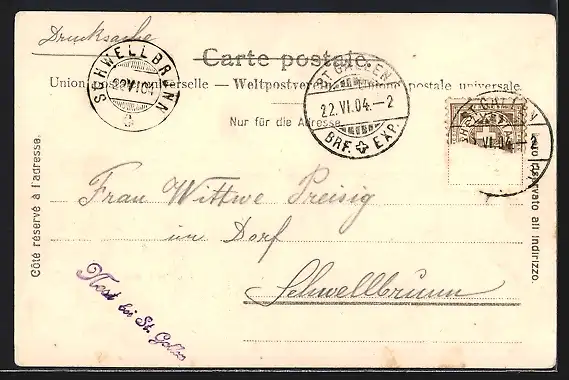 Drucksache
SCHWELLBRUNN
22.VI.04
Carte postale.
ST. GALLEN
22.VI.04.–2
BRF. EXP.
Union postale universelle. — Weltpostverein. — Unione postale universale.
Nur für die Adresse.
ST. GALLEN
VI.04.–2
Côté réservé à l'adresse.
lato riservato all' indirizzo.
Frau Wittwe Preisig
im Dorf
Schwellbrunn
bei St. Gallen